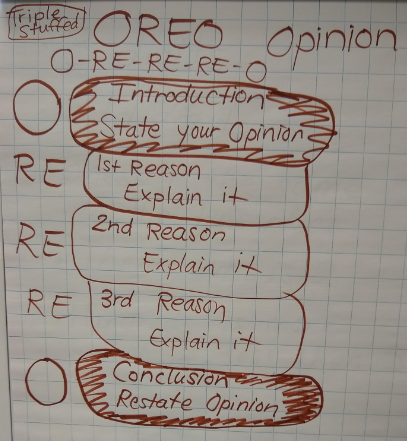 Triple
Stuffed
OREO Opinion
O-RE-RE-RE-O
O Introduction
State your Opinion
RE 1st Reason
Explain it
RE 2nd Reason
Explain it
RE 3rd Reason
Explain it
O Conclusion
Restate Opinion